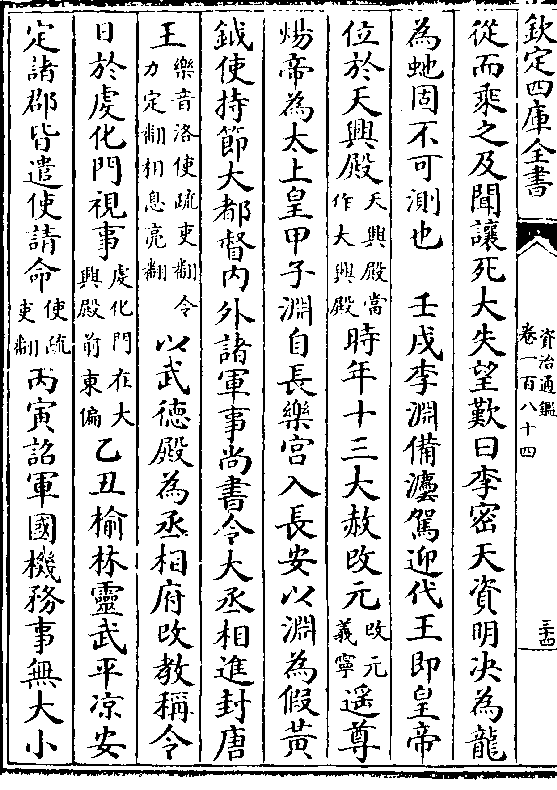 欽定四庫全書
資治通鑑
卷一百八十四
三十四
從而乘之及聞讓死大失望歎曰李密天資明决為龍
為虵固不可測也　壬戌李淵備灋駕迎代王即皇帝
位於天興殿天興殿當作大興殿時年十三大赦改元改元義寧遥尊
煬帝為太上皇甲子淵自長樂宫入長安以淵為假黃
鉞使持節大都督内外諸軍事尚書令大丞相進封唐
王樂音洛使疏吏翻令力定翻相息亮翻以武德殿為丞相府改教稱令
日於虔化門視事虔化門在大興殿前東偏乙丑榆林靈武平凉安
定諸郡皆遣使請命使疏吏翻丙寅詔軍國機務事無大小